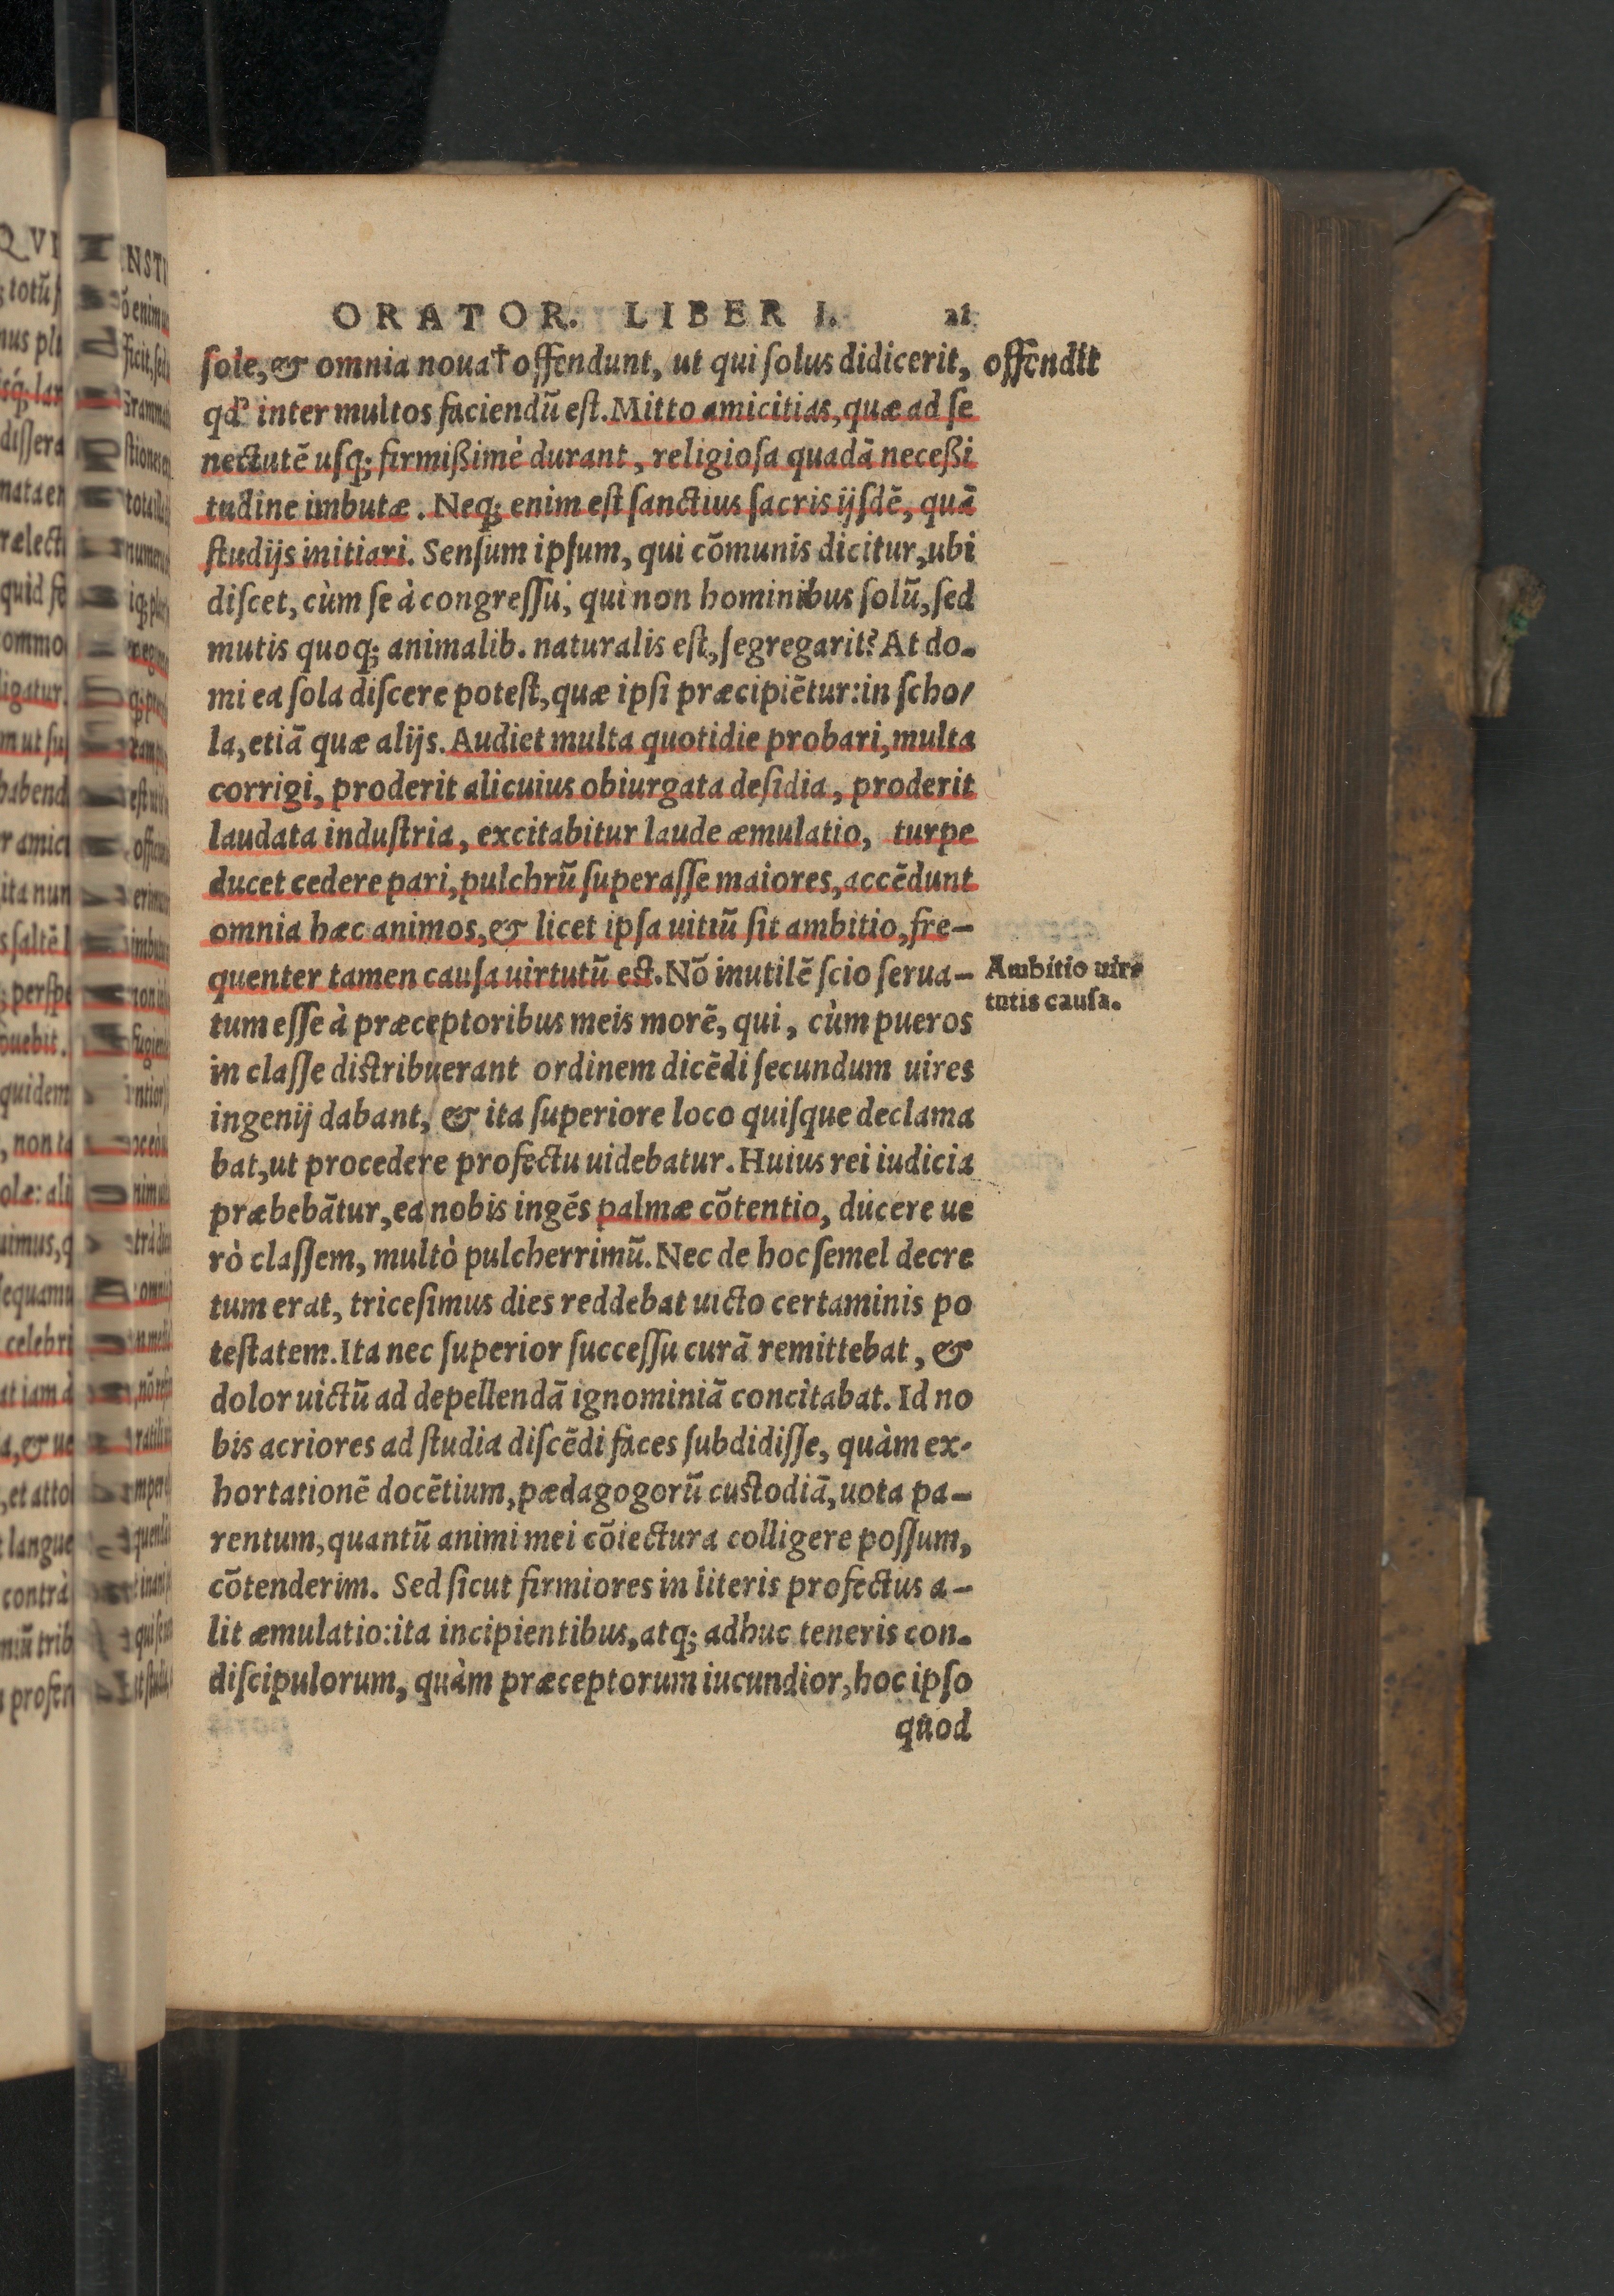 ORATOR. LIBER I. 21
ſole, & omnia noua†offendunt, ut qui ſolus didicerit,
offendit
qđ inter multos faciendũ eſt. Mitto amicitias, quæ ad ſe
nectutẽ uſq; firmißimè durant, religioſa quadã neceßi
tudine imbutæ. Neq; enim eſt ſanctius ſacris ijſdẽ, quã
ſtudijs initiari. Senſum ipſum, qui cõmunis dicitur, ubi
diſcet, cùm ſe à congreſſu, qui non hominibus ſolũ, ſed
mutis quoq; animalib. naturalis eſt, ſegregarit? At do-
mi ea ſola diſcere poteſt, quæ ipſi præcipiẽtur: in ſcho/
la, etiã quæ alijs. Audiet multa quotidie probari, multa
corrigi, proderit alicuius obiurgata deſidia, proderit
laudata induſtria, excitabitur laude æmulatio, turpe
ducet cedere pari, pulchrũ ſuperaſſe maiores, accẽdunt
omnia hæc animos, & licet ipſa uitiũ ſit ambitio, fre-
quenter tamen cauſa uirtutũ eſt. Nõ inutilẽ ſcio ſerua-
Ambitio uir-
tutis cauſa.
tum eſſe à præceptoribus meis morẽ, qui, cùm pueros
in claſſe diſtribuerant ordinem dicẽdi ſecundum uires
ingenij dabant, & ita ſuperiore loco quiſque declama
bat, ut procedere profectu uidebatur. Huius rei iudicia
præbebãtur, ea nobis ingẽs palmæ cõtentio, ducere ue
rò claſſem, multò pulcherrimũ. Nec de hoc ſemel decre
tum erat, triceſimus dies reddebat uicto certaminis po
teſtatem. Ita nec ſuperior ſucceſſu curã remittebat, &
dolor uictũ ad depellendã ignominiã concitabat. Id no
bis acriores ad ſtudia diſcẽdi faces ſubdidiſſe, quàm ex-
hortationẽ docẽtium, pædagogorũ cuſtodiã, uota pa-
rentum, quantũ animi mei cõiectura colligere poſſum,
cõtenderim. Sed ſicut firmiores in literis profectus a-
lit æmulatio: ita incipientibus, atq; adhuc teneris con-
diſcipulorum, quàm præceptorum iucundior, hoc ipſo
quod